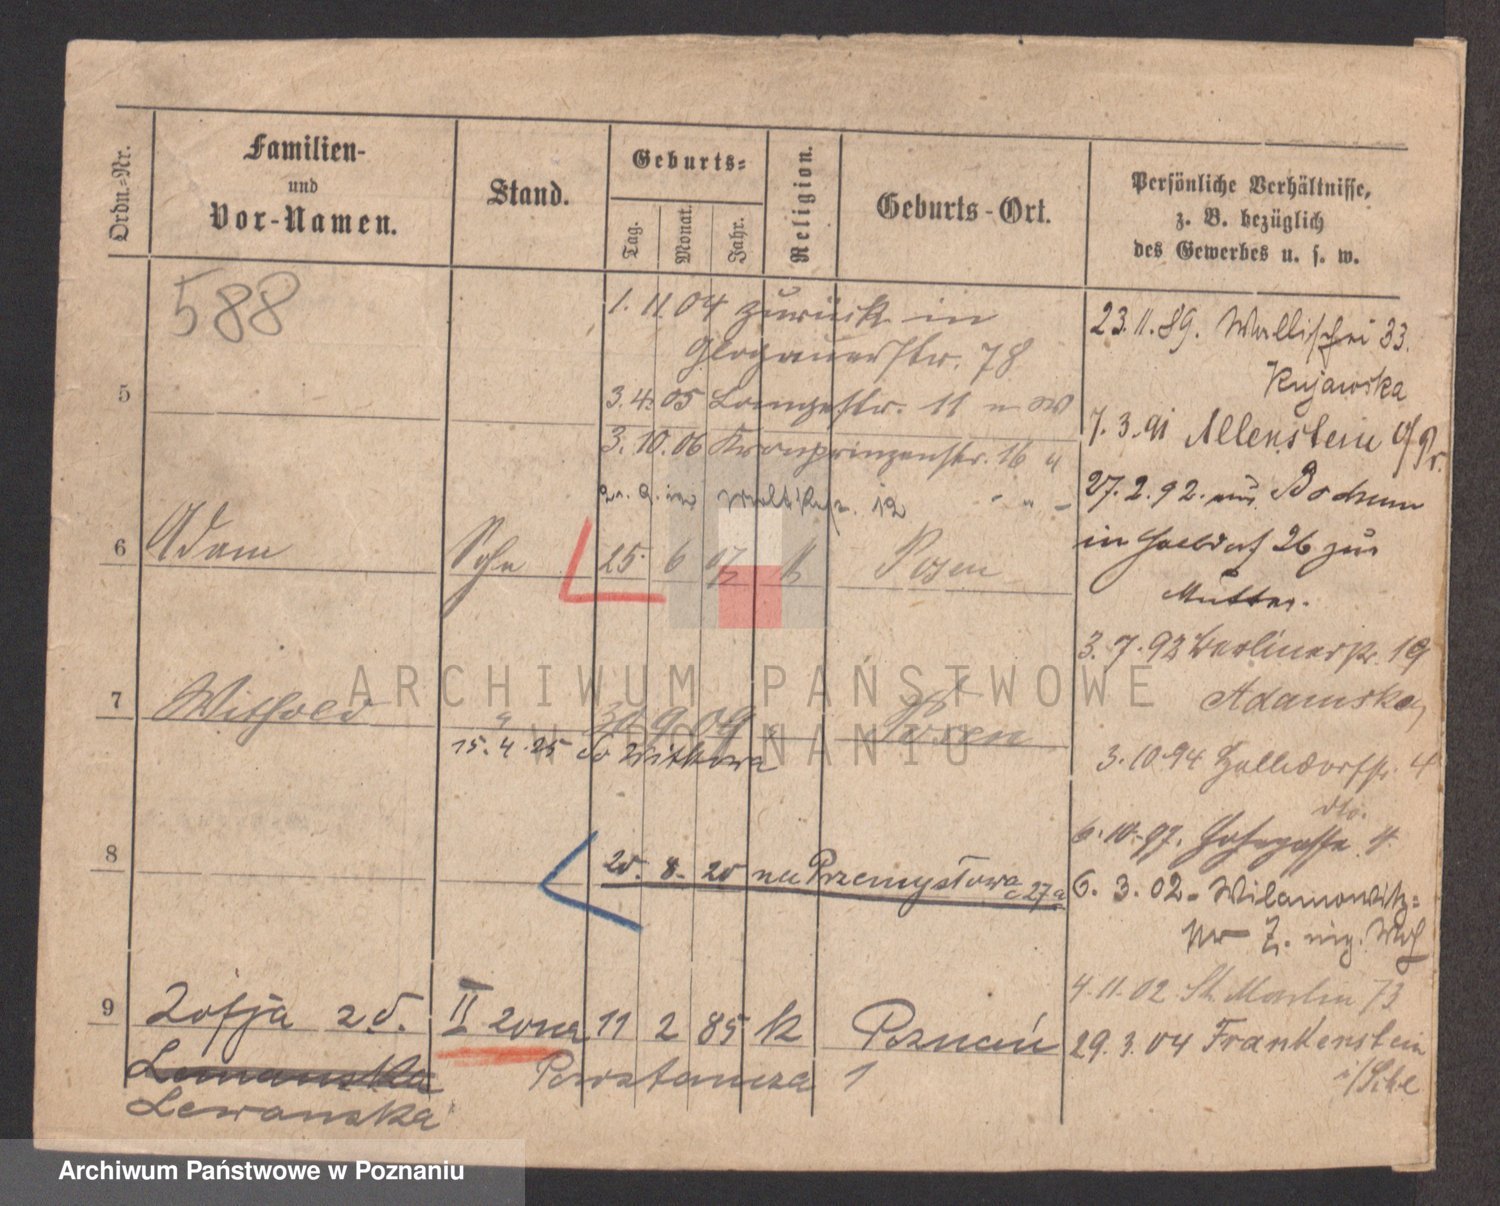 Ordn.-Nr.
Familien-
und
Vor-Namen.
Stand.
Geburts-
Tag.
Monat.
Jahr.
Religion.
Geburts-Ort.
Persönliche Verhältnisse,
z. B. bezüglich
des Gewerbes u. s. w.
588
1. 11. 04 zurück in
Glogauerstr. 78
5
3. 4. 05 Langestr. 11
3. 10. 06 Kronprinzenstr. 16
12
6 Adam Sohn 25. 6 07 k Posen
7 Withold " 30 9 09 Posen
15. 4. 25 do Witkowa
8
20. 8. 20 na Przemysłowa 27a
9 Zofja zd. II żona 11 2 85 k Poznań
Lemanska Powstancza 1
Lewanska
23. 11. 89. Wallischei 33.
Kujawska
7. 3. 91 Allenstein O/Pr.
27. 2. 92. aus Bochum
in 26 zur
Mutter.
3. 7. 92 Berlinerstr. 19
Adamska
3. 10. 94 4
dto.
6. 10. 97. Hohegasse 4.
6. 3. 02 - Wilamowitz-
4. 11. 02 St. Martin 73
29. 3. 04 Frankenstein
i/Schl
ARCHIWUM PAŃSTWOWE
W POZNANIU
Archiwum Państwowe w Poznaniu